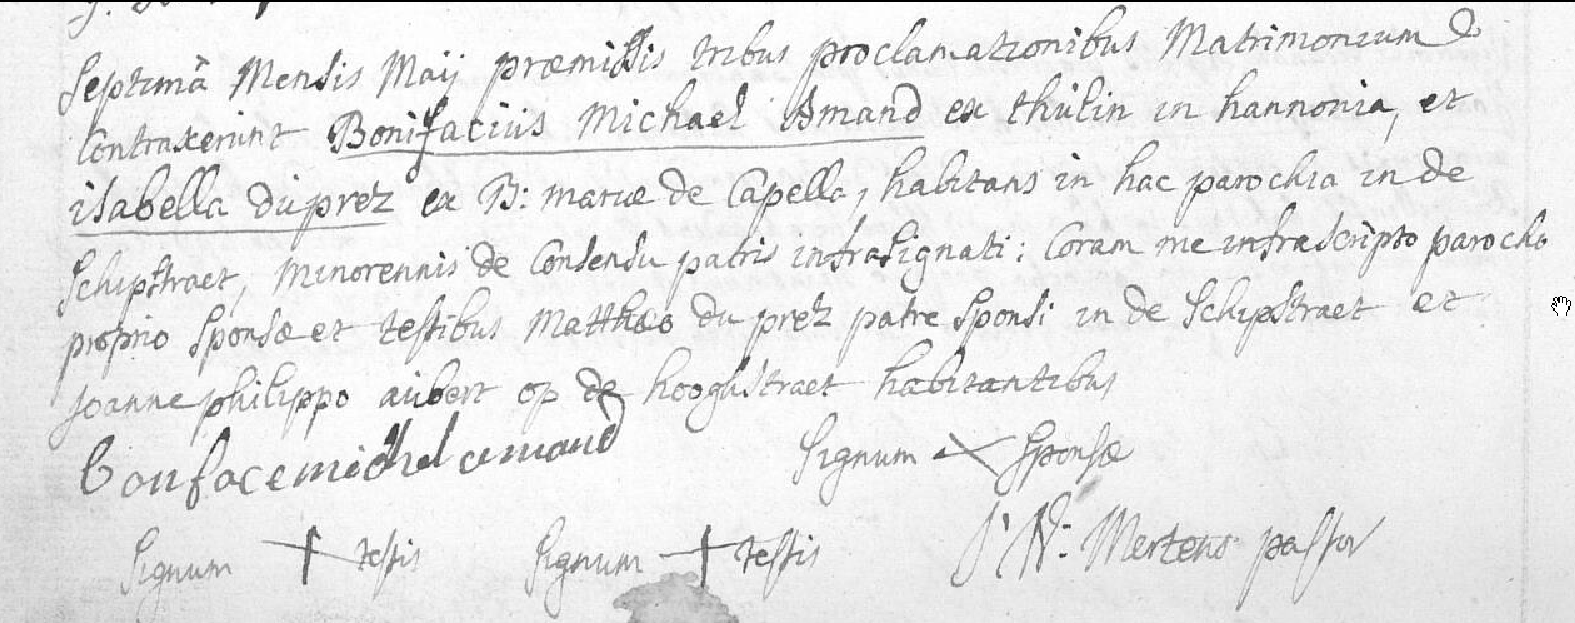 Septimâ Mensis Maij præmissis tribus proclamationibus Matrimonium
Contraxerunt Bonifacius Michael Amand ex thulin in hannonia, et
isabella duprez ex B: mariæ de Capella, habitans in hac parochia in de
Schipstraet, minorennis de Consensu patris infrasignati; Coram me infrascripto parocho
proprio sponsæ et testibus Mattheo du prez patre sponsi in de Schipstraet et
joanne philippo aubert op de hooghstraet habitantibus
bonface michel amand
Signum sponsæ
Signum testis Signum testis Mertens pastor